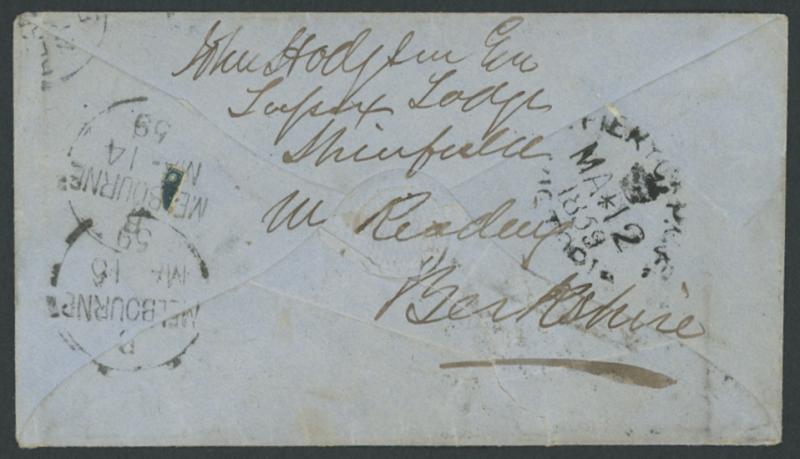 John Hodgson Esq
Lodge
Shinfield
Nr Reading
Berkshire
MELBOURNE
MA 14
59
MELBOURNE
MA 16
59
MA*12
1859
VICTORIA